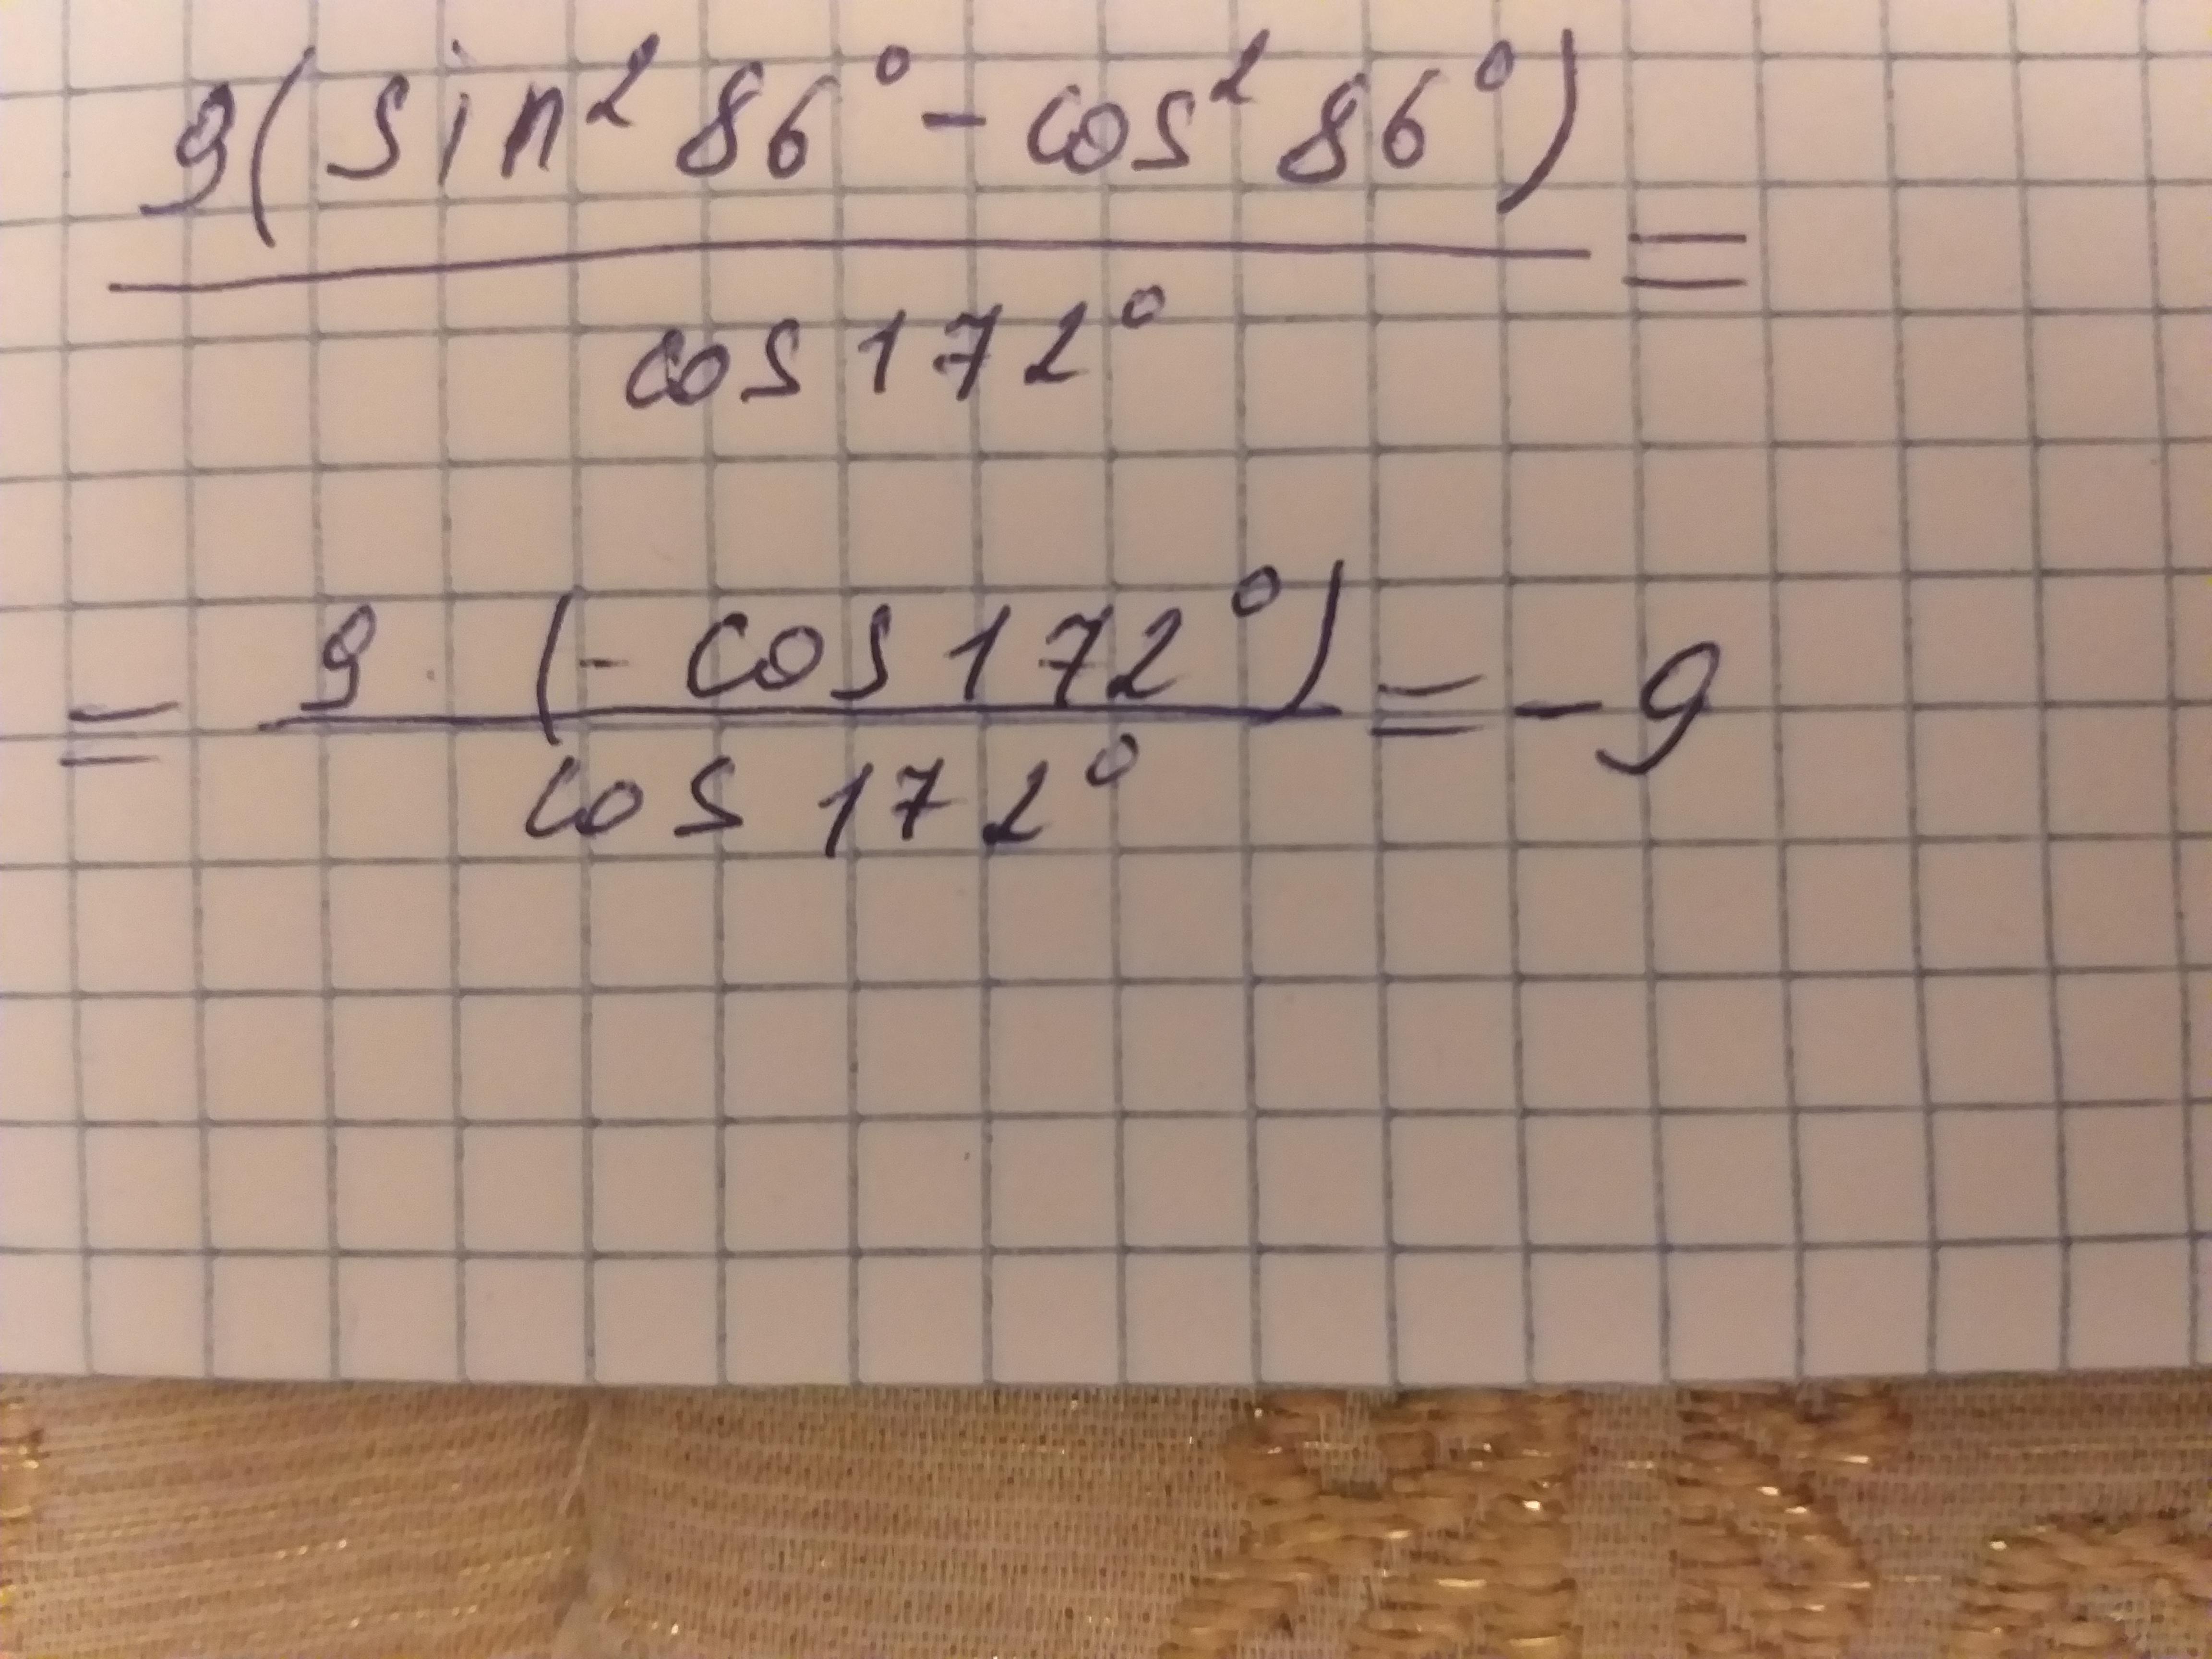 9(sin²86°-cos²86°)=
cos172°
= 9 · (-cos172°) = -9
cos172°